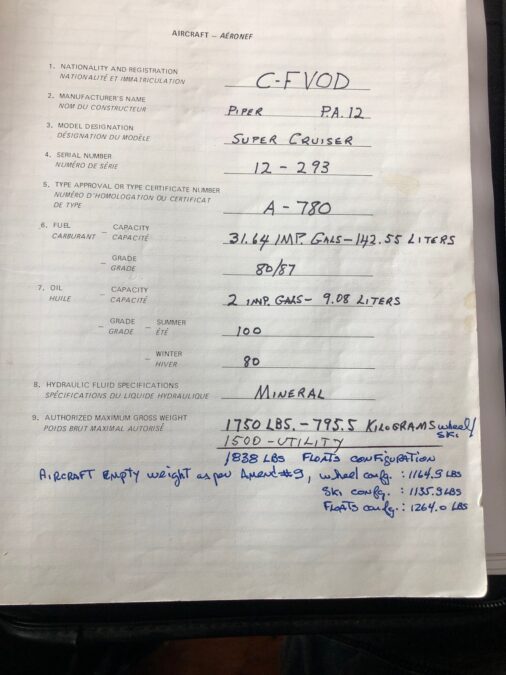 AIRCRAFT – AÉRONEF
1. NATIONALITY AND REGISTRATION
NATIONALITÉ ET IMMATRICULATION
C-FVOD
2. MANUFACTURER'S NAME
NOM DU CONSTRUCTEUR
PIPER P.A. 12
3. MODEL DESIGNATION
DÉSIGNATION DU MODÈLE
SUPER CRUISER
4. SERIAL NUMBER
NUMÉRO DE SÉRIE
12 - 293
5. TYPE APPROVAL OR TYPE CERTIFICATE NUMBER
NUMÉRO D'HOMOLOGATION OU CERTIFICAT
DE TYPE
A - 780
6. FUEL – CAPACITY
CARBURANT CAPACITÉ
31.64 IMP. GALS – 142.55 LITERS
– GRADE
GRADE
80/87
7. OIL – CAPACITY
HUILE CAPACITÉ
2 IMP. GALS – 9.08 LITERS
– GRADE – SUMMER
GRADE ÉTÉ
100
– WINTER
HIVER
80
8. HYDRAULIC FLUID SPECIFICATIONS
SPÉCIFICATIONS DU LIQUIDE HYDRAULIQUE
MINERAL
9. AUTHORIZED MAXIMUM GROSS WEIGHT
POIDS BRUT MAXIMAL AUTORISÉ
1750 LBS. – 795.5 KILOGRAMS wheel/
SKI
1500 - UTILITY
1838 LBS FLOATS CONFIGURATION
AIRCRAFT Empty weight as per Amend #9, wheel config. : 1164.9 LBS
SKI config. : 1135.9 LBS
FLOATS config. : 1264.0 LBS